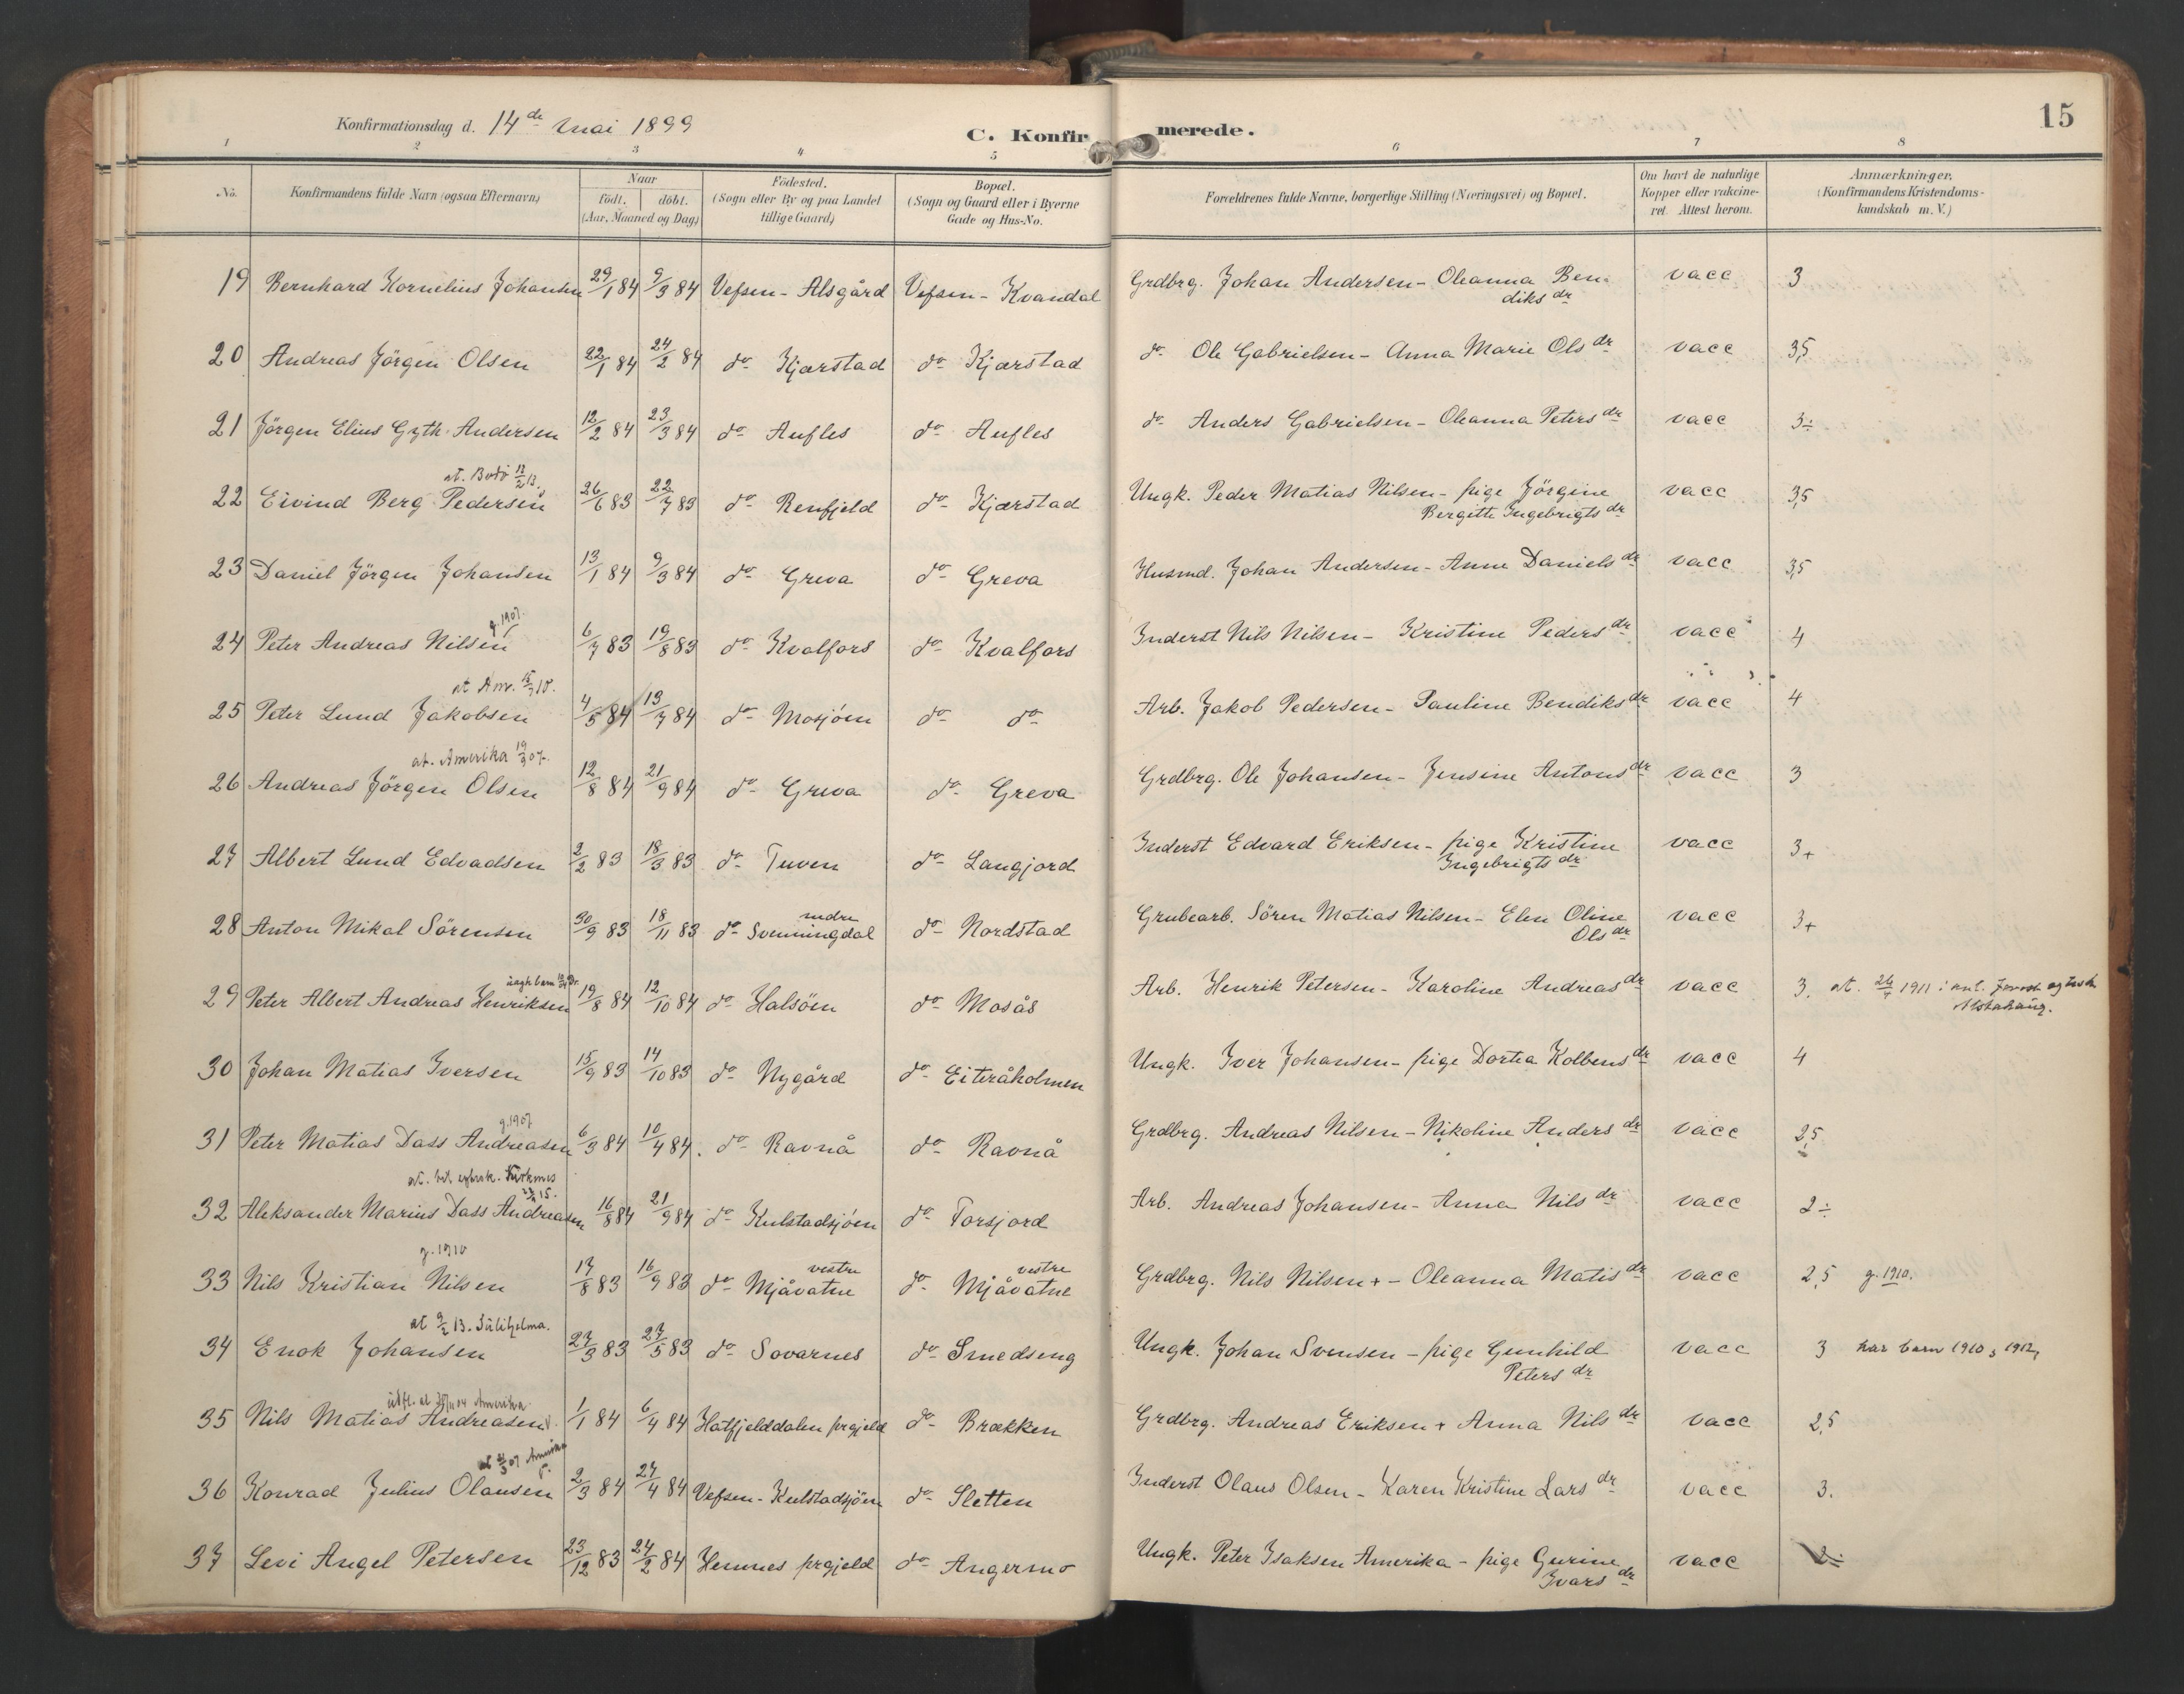 Konfirmationsdag d. 14de Mai 1899
C. Konfirmerede.
15
1 2 3 4 5 6 7 8
No. Konfirmandens fulde Navn (ogsaa Efternavn) Naar født. døbt. (Aar, Maaned og Dag) Fødested. (Sogn eller By og paa Landet tillige Gaard) Bopæl. (Sogn og Gaard eller i Byerne Gade og Hus-No. Forældrenes fulde Navne, borgerlige Stilling (Næringsvei) og Bopæl. Om havt de naturlige Kopper eller vakcineret. Attest herom. Anmærkninger. (Konfirmandens Kristendomskundskab m. V.)
19 Bernhard Kornelius Johansen 29/1 84 9/3 84 Vefsen - Alsgård Vefsen - Kvandal Grdbrg. Johan Andersen - Oleanna Bendiksdr vacc 3
20 Andreas Jörgen Olsen 22/1 84 24/2 84 do Kjærstad do Kjærstad do Ole Gabrielsen - Anna Marie Olsdr vacc 3,5
21 Jörgen Elius Gyth Andersen 12/2 84 23/3 84 do Aufles do Aufles do Anders Gabrielsen - Oleanna Petersdr vacc 3÷
at. Bodö 12/2 13.
22 Eivind Berg Pedersen 26/6 83 22/7 83 do Renfjeld do Kjærstad Ungk. Peder Matias Nilsen - pige Jörgine Bergitte Ingebrigtsdr vacc 3,5
23 Daniel Jörgen Johansen 13/1 84 9/3 84 do Greva do Greva Husmd. Johan Andersen - Anne Danielsdr vacc 3,5
g. 1907.
24 Peter Andreas Nilsen 6/7 83 19/8 83 do Kvalfors do Kvalfors Inderst Nils Nilsen - Kristine Pedersdr vacc 4
at Am. 15/3 10.
25 Peter Lund Jakobsen 4/5 84 13/7 84 do Mosjöen do do Arb. Jakob Pedersen - Pauline Bendiksdr vacc 4
at. Amerika 19/3 07.
26 Andreas Jörgen Olsen 12/8 84 21/9 84 do Greva do Greva Grdbrg. Ole Johansen - Jensine Antonsdr vacc 3
27 Albert Lund Edvadsen 2/2 83 18/3 83 do Tuven do Langjord Inderst Edvard Eriksen - pige Kristine Ingebrigtsdr vacc 3+
28 Anton Mikal Sörensen 30/9 83 18/11 83 do Svenningdal do Nordstad Grubearb. Sören Matias Nilsen - Elen Oline Olsdr vacc 3+
29 Peter Albert Andreas Henriksen 19/8 84 12/10 84 do Halsöen do Mosås Arb. Henrik Petersen - Karoline Andreasdr vacc 3. at. 1911 Alstahaug.
30 Johan Matias Iversen 15/9 83 14/10 83 do Nygård do Eiteråholmen Ungk. Iver Johansen - pige Dortea Kolbensdr vacc 4
g. 1907
31 Peter Matias Dass Andreasen 6/3 84 10/4 84. do Ravnå do Ravnå Grdbrg. Andreas Nilsen - Nikoline Andersdr vacc 2,5
32 Aleksander Marius Dass Andreasen 16/8 84 21/9 84 do Kulstadsjöen do Forsjord Arb. Andreas Johansen - Anna Nilsdr vacc 2÷
g. 1910
33 Nils Kristian Nilsen 17/8 83 16/9 83 do vestre Mjåvatne do vestre Mjåvatne Grdbrg. Nils Nilsen + - Oleanna Matisdr vacc 2,5 g. 1910.
at 9/2 13. Sulitjelma.
34 Enok Johansen 27/3 83 27/5 83 do Sovarnes do Smedseng Ungk. Johan Svensen - pige Gunhild Petersdr vacc 3 har barn 1910, 1912,
Amerika
35 Nils Matias Andreasen 1/1 84 6/4 84 Hatfjelddalen prgjeld do Brækken Grdbrg. Andreas Eriksen + Anna Nilsdr vacc 2,5
07 Amerika
36 Konrad Julius Olausen 2/3 84 27/4 84 Vefsen - Kulstadsjöen do Sletten Inderst Olaus Olsen - Karen Kristine Larsdr vacc 3.
37 Levi Angel Petersen 23/12 83 24/2 84 Hemnes prgjeld do Angermo Ungk. Peter Isaksen Amerika - pige Gurine Ivarsdr vacc 2÷